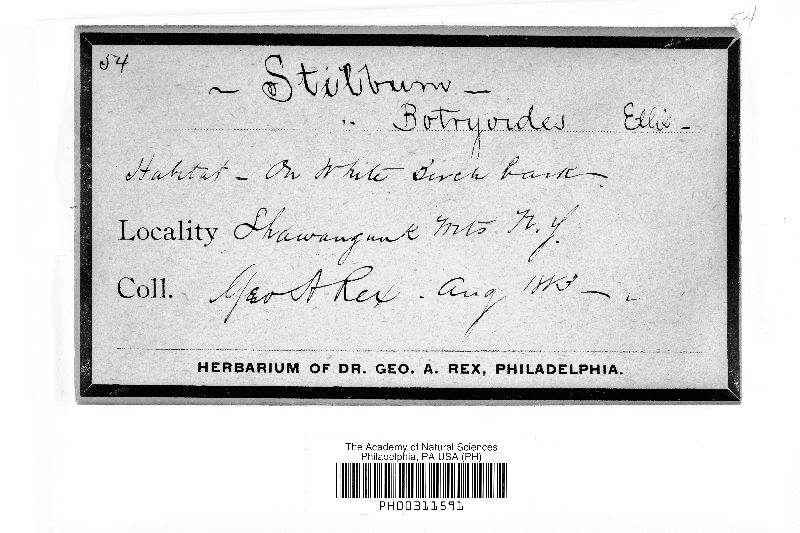 54
54
~ Stilbum –
" Botryoides Ellis –
Habitat – On White Birch bark –
Locality Shawangunk Mts N.Y.
Coll. Geo A. Rex . Aug 1883 – .
HERBARIUM OF DR. GEO. A. REX, PHILADELPHIA.
The Academy of Natural Sciences
Philadelphia, PA USA (PH)
PH00311591